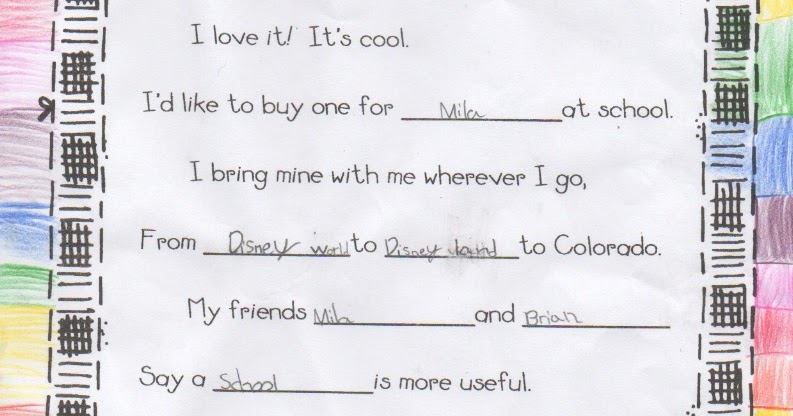 I love it! It's cool.
I'd like to buy one for Mila at school.
I bring mine with me wherever I go,
From Disney world to Disney to Colorado.
My friends Mila and Brian
Say a School is more useful.